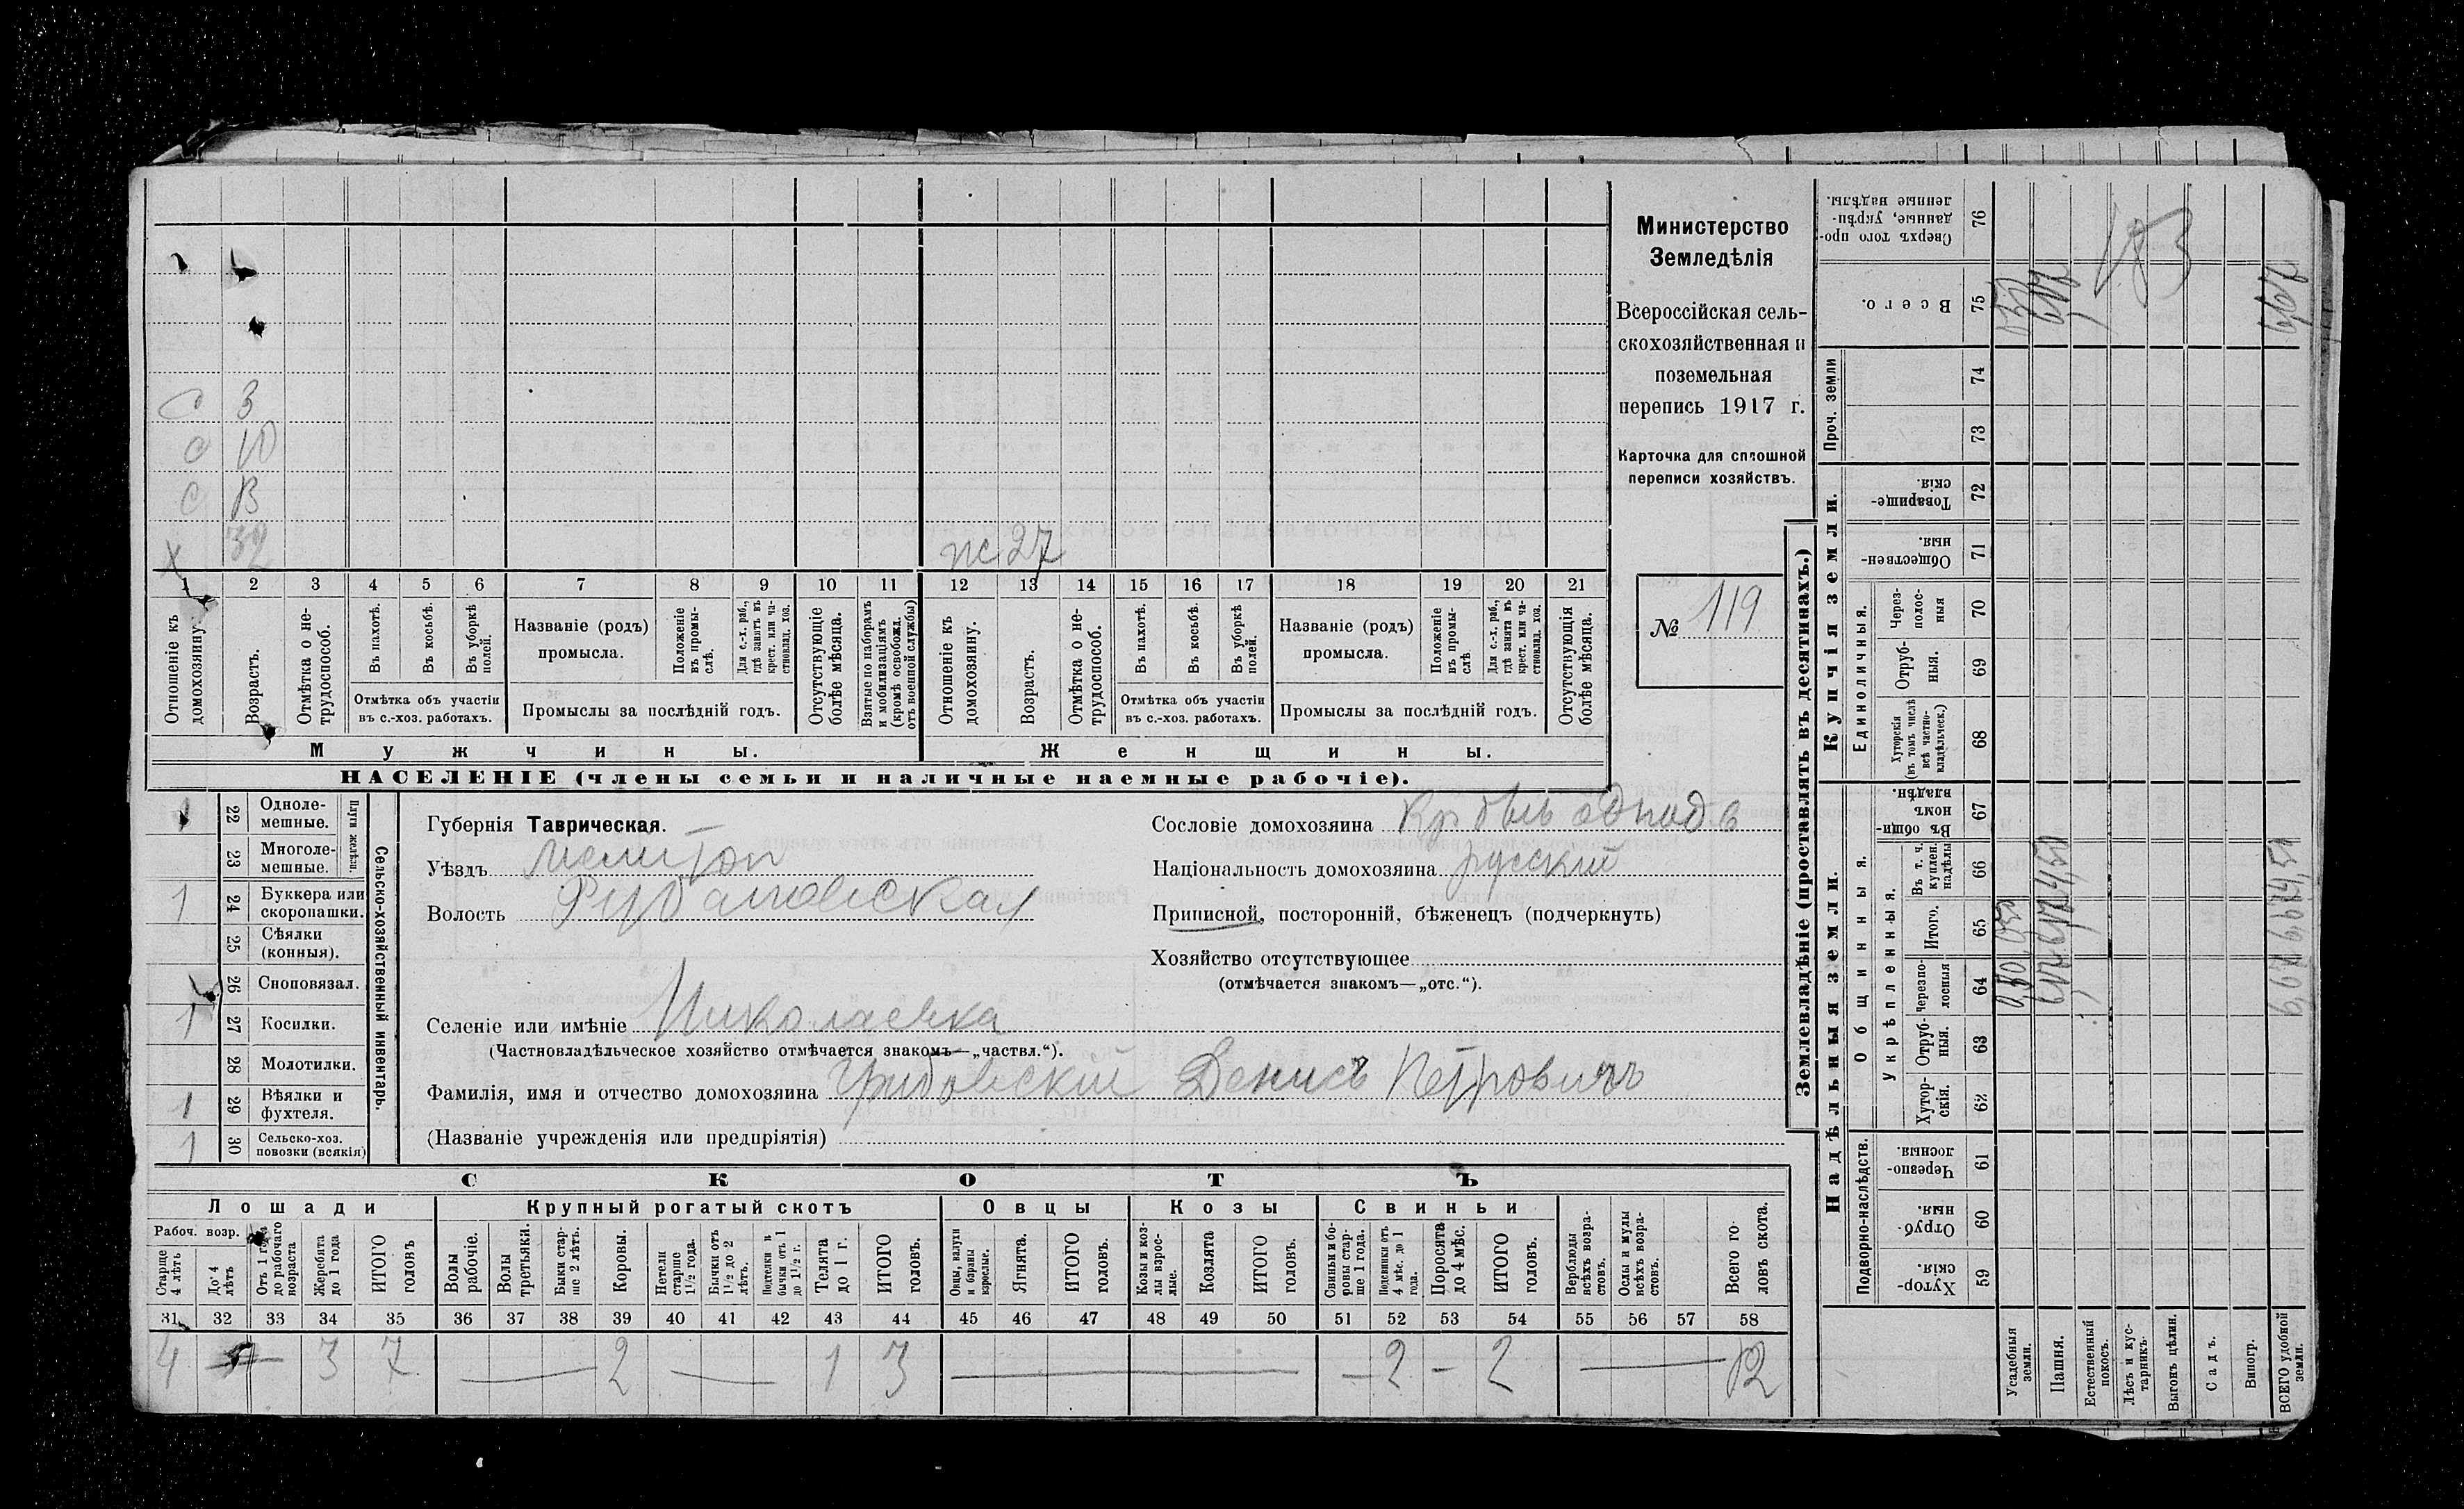 Министерство
Земледѣлія
Всероссійская сель-
скохозяйственная и
поземельная
перепись 1917 г.
Карточка для сплошной
переписи хозяйствъ.
№ 119
С 3
С 10
С
Х 32
ж 27
1 2 3 4 5 6 7 8 9 10 11 12 13 14 15 16 17 18 19 20 21
Отношеніе къ домохозяину.
Возрастъ.
Отмѣтка о не-трудоспособ.
Въ пахотѣ.
Въ косьбѣ.
Въ уборкѣ полей.
Отмѣтка объ участіи
въ с.-хоз. работахъ.
Названіе (родъ)
промысла.
Положеніе въ промы-слѣ.
Для с.-х. раб., гдѣ занятъ въ крест. или ча-стновлад. хоз.
Промыслы за послѣдній годъ.
Отсутствующіе болѣе мѣсяца.
Взятые по наборамъ и мобилизаціямъ (кромѣ освобожд. отъ военной службы)
Отношеніе къ домохозяину.
Возрастъ.
Отмѣтка о не-трудоспособ.
Въ пахотѣ.
Въ косьбѣ.
Въ уборкѣ полей.
Отмѣтка объ участіи
въ с.-хоз. работахъ.
Названіе (родъ)
промысла.
Положеніе въ промы-слѣ
Для с.-х. раб., гдѣ занята въ крест. или ча-стновлад. хоз.
Промыслы за послѣдній годъ.
Отсутствующія болѣе мѣсяца.
Мужчины. Женщины.
НАСЕЛЕНІЕ (члены семьи и наличные наемные рабочіе).
Сельско-хозяйственный инвентарь.
Плуги желѣзн.
1 22 Одноле-мешные.
23 Многоле-мешные.
1 24 Буккера или скоропашки.
25 Сѣялки (конныя).
26 Сноповязал.
1 27 Косилки.
28 Молотилки.
1 29 Вѣялки и фухтеля.
1 30 Сельско-хоз. повозки (всякія)
Губернія Таврическая.
Уѣздъ Мелитоп
Волость
Селеніе или имѣніе Николаевка
(Частновладѣльческое хозяйство отмѣчается знакомъ—„частвл.“).
Фамилія, имя и отчество домохозяина Грибовскій Денисъ Петровичъ
(Названіе учрежденія или предпріятія)
Сословіе домохозяина
Національность домохозяина русскій
Приписной, посторонній, бѣженецъ (подчеркнуть)
Хозяйство отсутствующее
(отмѣчается знакомъ—„отс.“).
СКОТЪ
Лошади Крупный рогатый скотъ Овцы Козы Свиньи
Рабоч. возр.
Старше 4 лѣтъ
До 4 лѣтъ
Отъ 1 года до рабочаго возраста
Жеребята до 1 года
ИТОГО головъ
Волы рабочіе.
Волы третьяки.
Быки стар-ше 2 лѣтъ.
Коровы.
Нетели старше 1½ года.
Бычки отъ 1½ до 2 лѣтъ.
Подтелки и бычки отъ 1 до 1½ г.
Телята до 1 г.
ИТОГО головъ.
Овцы, валухи и бараны взрослые.
Ягнята.
ИТОГО головъ.
Козы и коз-лы взрос-лые.
Козлята
ИТОГО головъ.
Свиньи и бо-ровы стар-ше 1 года.
Подсвинки отъ 4 мѣс. до 1 года.
Поросята до 4 мѣс.
ИТОГО головъ.
Верблюды всѣхъ возра-стовъ.
Ослы и мулы всѣхъ возра-стовъ.
Всего го-ловъ скота.
31 32 33 34 35 36 37 38 39 40 41 42 43 44 45 46 47 48 49 50 51 52 53 54 55 56 57 58
4 — 3 7 — 2 — 1 3 — — 2 — 2 — 12
Землевладѣніе (проставлять въ десятинахъ.)
Надѣльныя земли. Купчія земли. Проч. земли
Подворно-наслѣдств.
Общинныя.
Укрѣпленныя.
Единоличныя.
Хутор-скія. 59
Отруб-ныя. 60
Черезпо-лосныя. 61
Хутор-скія. 62
Отруб-ныя. 63
Черезпо-лосныя 64
Итого. 65
Въ т. ч. куплен. надѣлы 66
Въ общин-номъ владѣн. 67
Хуторскія (въ томъ числѣ всѣ частно-владѣльческ.) 68
Отруб-ныя. 69
Через-полос-ныя 70
Обществен-ныя. 71
Товарище-скія. 72
73
74
Всего. 75
Сверхъ того про-данные, укрѣп-ленные надѣлы. 76
183
Усадебныя земли.
Пашня.
Естественный покосъ.
Лѣсъ и кус-тарникъ.
Выгонъ цѣлин.
Садъ.
Виногр.
ВСЕГО удобной земли.